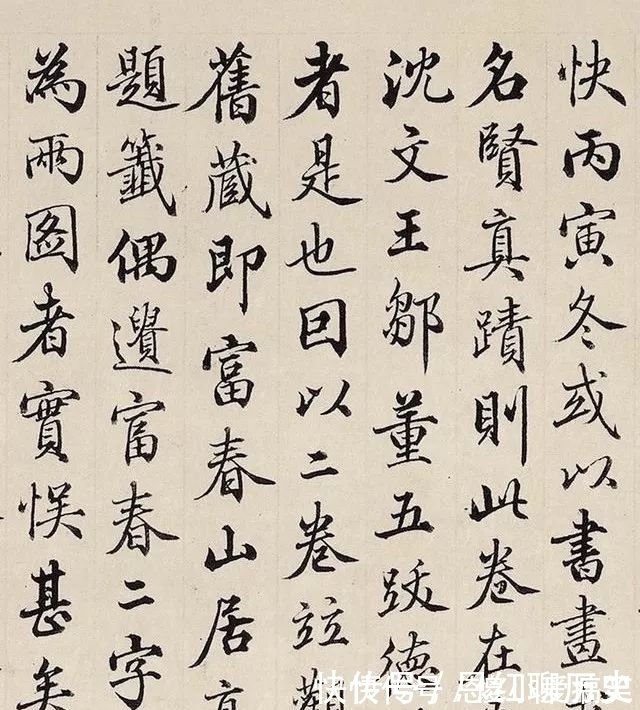 快丙寅冬或以書畫
名賢真蹟則此卷在
沈文王鄒董五跋德
者是也因以二卷竝觀
舊藏即富春山居
題籤偶遺富春二字
為兩圖者實悮甚矣
快传号